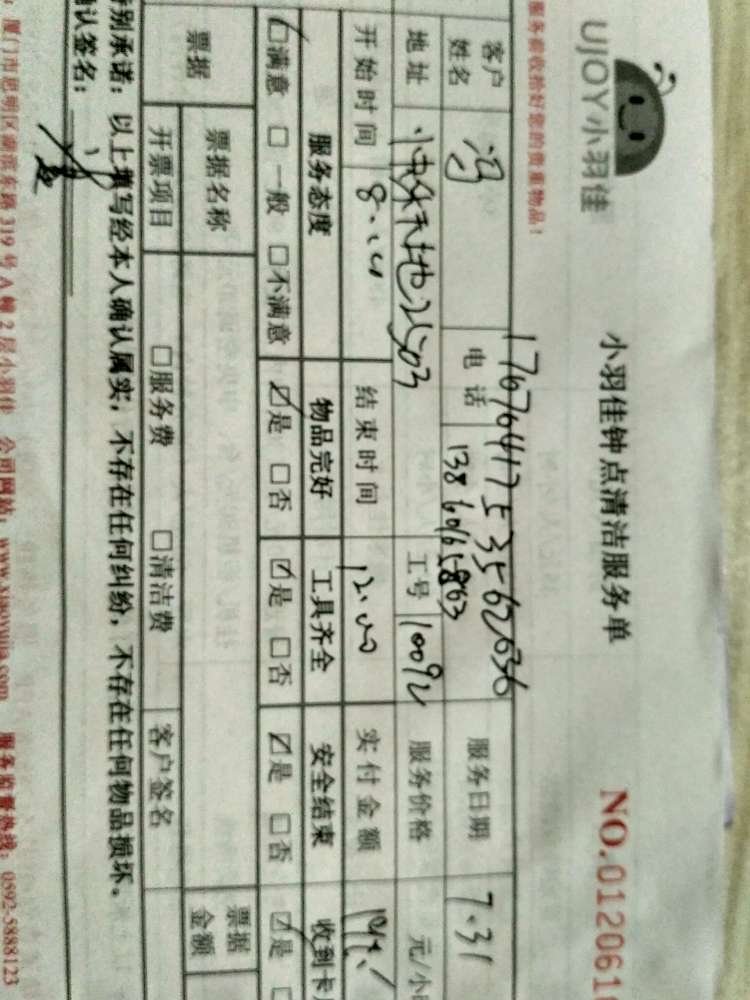 UJOY小羽佳
小羽佳钟点清洁服务单
NO.012061
服务前收拾好您的贵重物品！
客户姓名 冯 电话 1767041753562636 服务日期 7.31
13860165863
地址 天地2503 工号 10092 服务价格 元/小
开始时间 8.00 结束时间 12.00 实付金额
服务态度 物品完好 工具齐全 安全结束 收到卡
☑满意 □一般 □不满意 ☑是 □否 ☑是 □否 ☑是 □否 ☑是
票据 票据名称 票据金额
开票项目 □服务费 □清洁费 客户签名
特别承诺：以上填写经本人确认属实，不存在任何纠纷，不存在任何物品损坏。
确认签名：
：厦门市思明区湖滨东路319号A幢2层小羽佳 公司网站：www.xiaoyujia.com 服务监督热线：0592-5888123